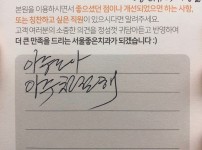 본원을 이용하시면서 좋으셨던 점이나 개선되었으면 하는 사항,
또는 칭찬하고 싶은 직원이 있으시다면 말씀해 주세요.
고객 여러분의 소중한 의견을 정성껏 귀담아듣고 반영하여
더 큰 만족을 드리는 서울좋은치과가 되겠습니다 :)
아주
아주 친절해